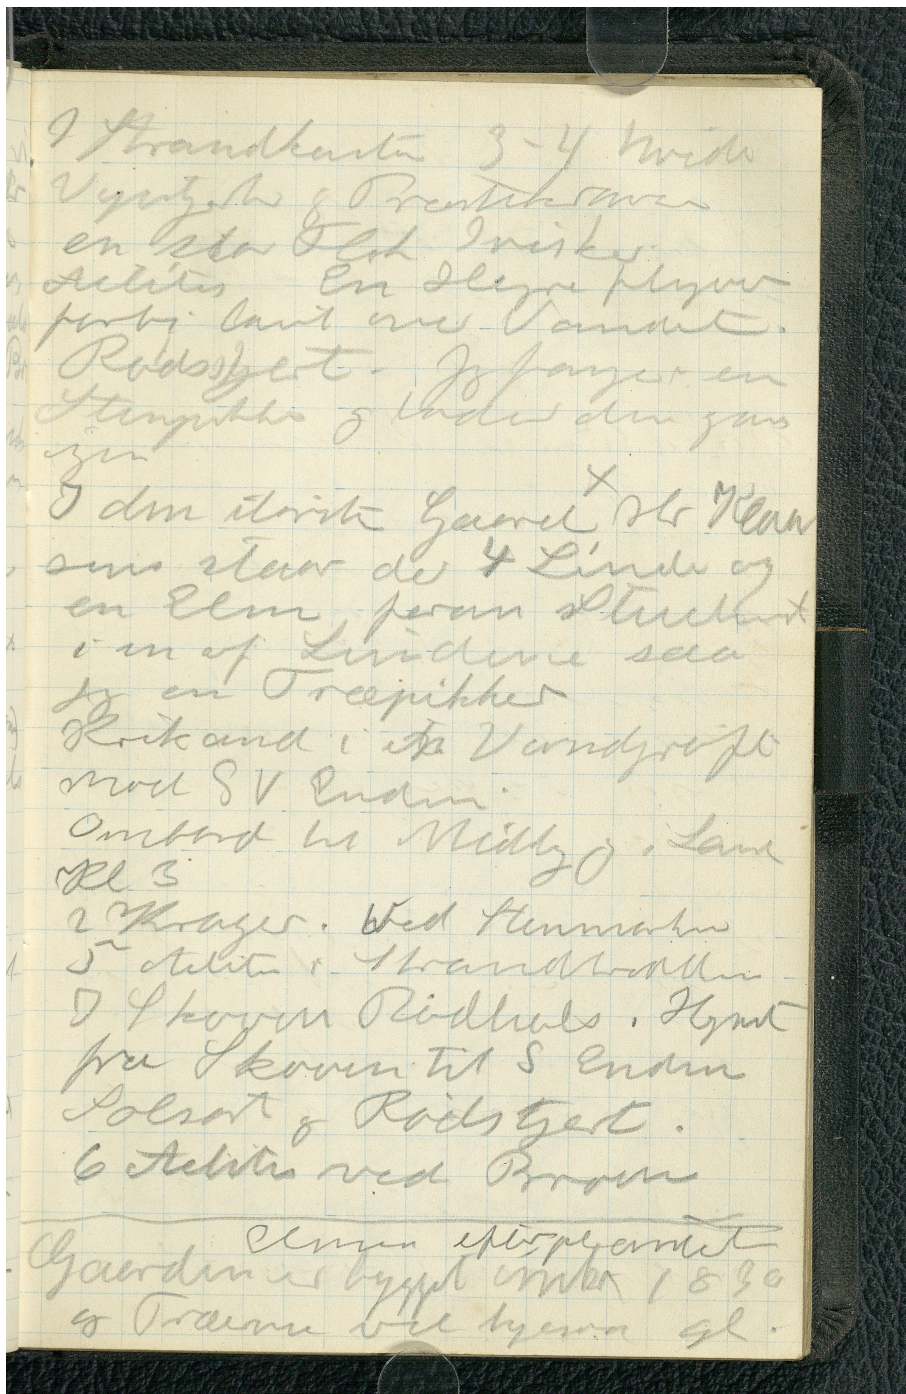 I Strandkanten 3-4 hvide
Vipstjerter & Præstekraver
en stor Flok Irisker.
Actitis En Hejre flyver
forbi lavt over Vandet.
Rødstjert. Jeg fanger en
Stenpikker & lader den gaa
igen
I den største Gaard x Hr Klau
sens staar der 4 Linde og
en Elm foran Stuehuset
i en af Lindene saa
jeg en Træpikker
Krikand i en Vandgrøft
mod SV Enden.
Ombord til Middag i Land
Kl 3
2 Krager. Ved Stenmarken
5 Actitis i Strandbredden
I Skoven Rødhals.
fra Skoven til S Enden
Solsort & Rødstjert.
6 Actitis ved Broen
Elmen efterplantet
Gaarden er bygget omkr 1830
og Træerne vel ligesaa gl.